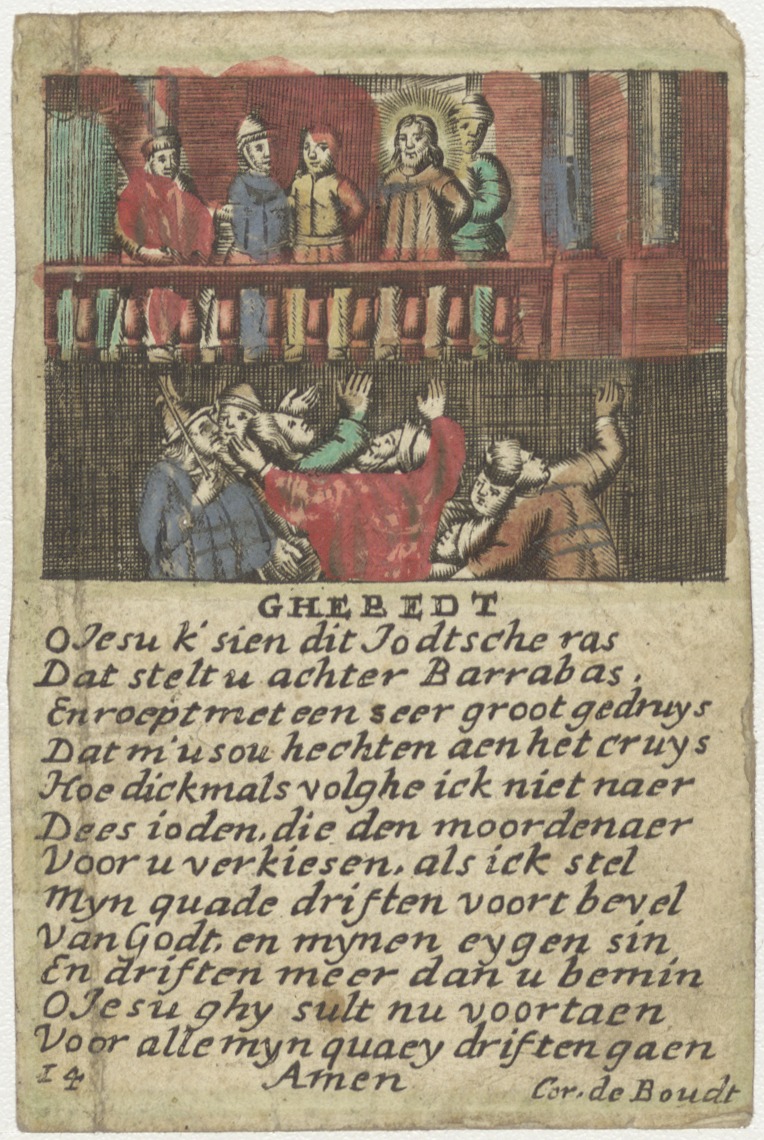 GHEBEDT
O Jesu k' sien dit Jodtsche ras
Dat stelt u achter Barrabas,
En roept met een seer groot gedruys
Dat m'u sou hechten aen het cruys
Hoe dickmals volghe ick niet naer
Dees ioden, die den moordenaer
Voor u verkiesen, als ick stel
Myn quade driften voort bevel
Van Godt, en mynen eygen sin
En driften meer dan u bemin
O Jesu ghy sult nu voortaen
Voor alle myn quaey driften gaen
Amen
14
Cor. de Boudt